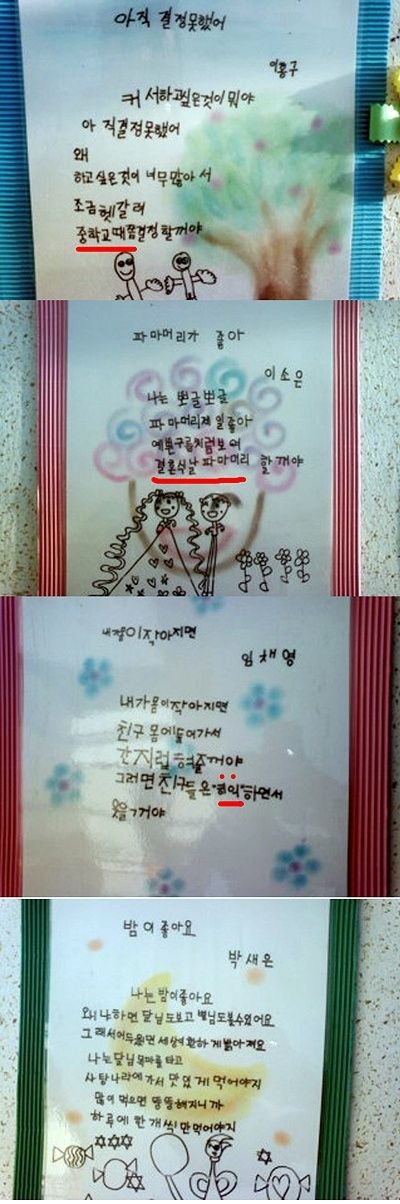 아직 결정못했어
이홍구
커서하고싶은것이 뭐야
아 직결정못했어
왜
하고싶은것이 너무많아 서
조금헷갈려
중학교때쯤결정할꺼야
파마머리가 좋아
이소은
나는 뽀글뽀글
파마머리제일좋아
예쁜구름처럼보여
결혼식날파마머리 할꺼야
내몸이작아지면
임채영
내가몸이작아지면
친구몸에들어가서
간지럼혀줄꺼야
그러면친구들은"킥킥"하면서
웃을꺼야
밤이좋아요
박새은
나는밤이좋아요
왜냐하면달님도보고별님도볼수있어요
그래서어두운면세상이환하게밝아져요
나는달님목마를타고
사탕나라에가서맛있게먹어야지
많이먹으면뚱뚱해지니까
하루에한개씩만먹어야지